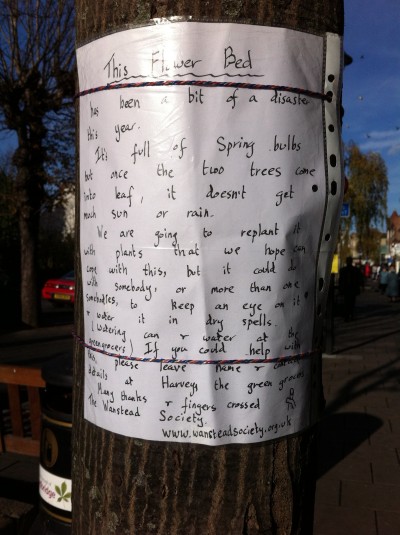 This Flower Bed
has been a bit of a disaster
this year.
It's full of Spring bulbs
but once the two trees come
into leaf, it doesn't get
much sun or rain.
We are going to replant it
with plants that we hope can
cope with this, but it could do
with somebody, or more than one
somebodies, to keep an eye on it
& water it in dry spells.
(Watering can & water at the
greengrocers) If you could help with
this, please leave name &
details at Harveys the green grocers
Many thanks & fingers crossed
The Wanstead Society.
www.wansteadsociety.org.uk